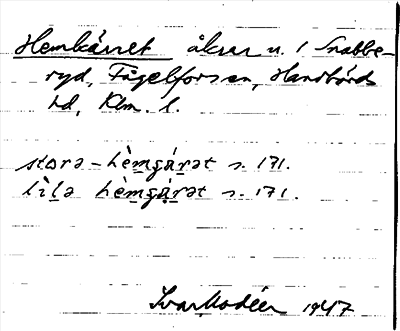 Hemkärret åkrar n. 1 Snabbe-
ryd, Fågelforsen, Handbörds
hd, Klm. l.
stora-hèmçä́rət s. 171.
lìla hèmçä́rət s. 171.
Ivar Modéer 1947